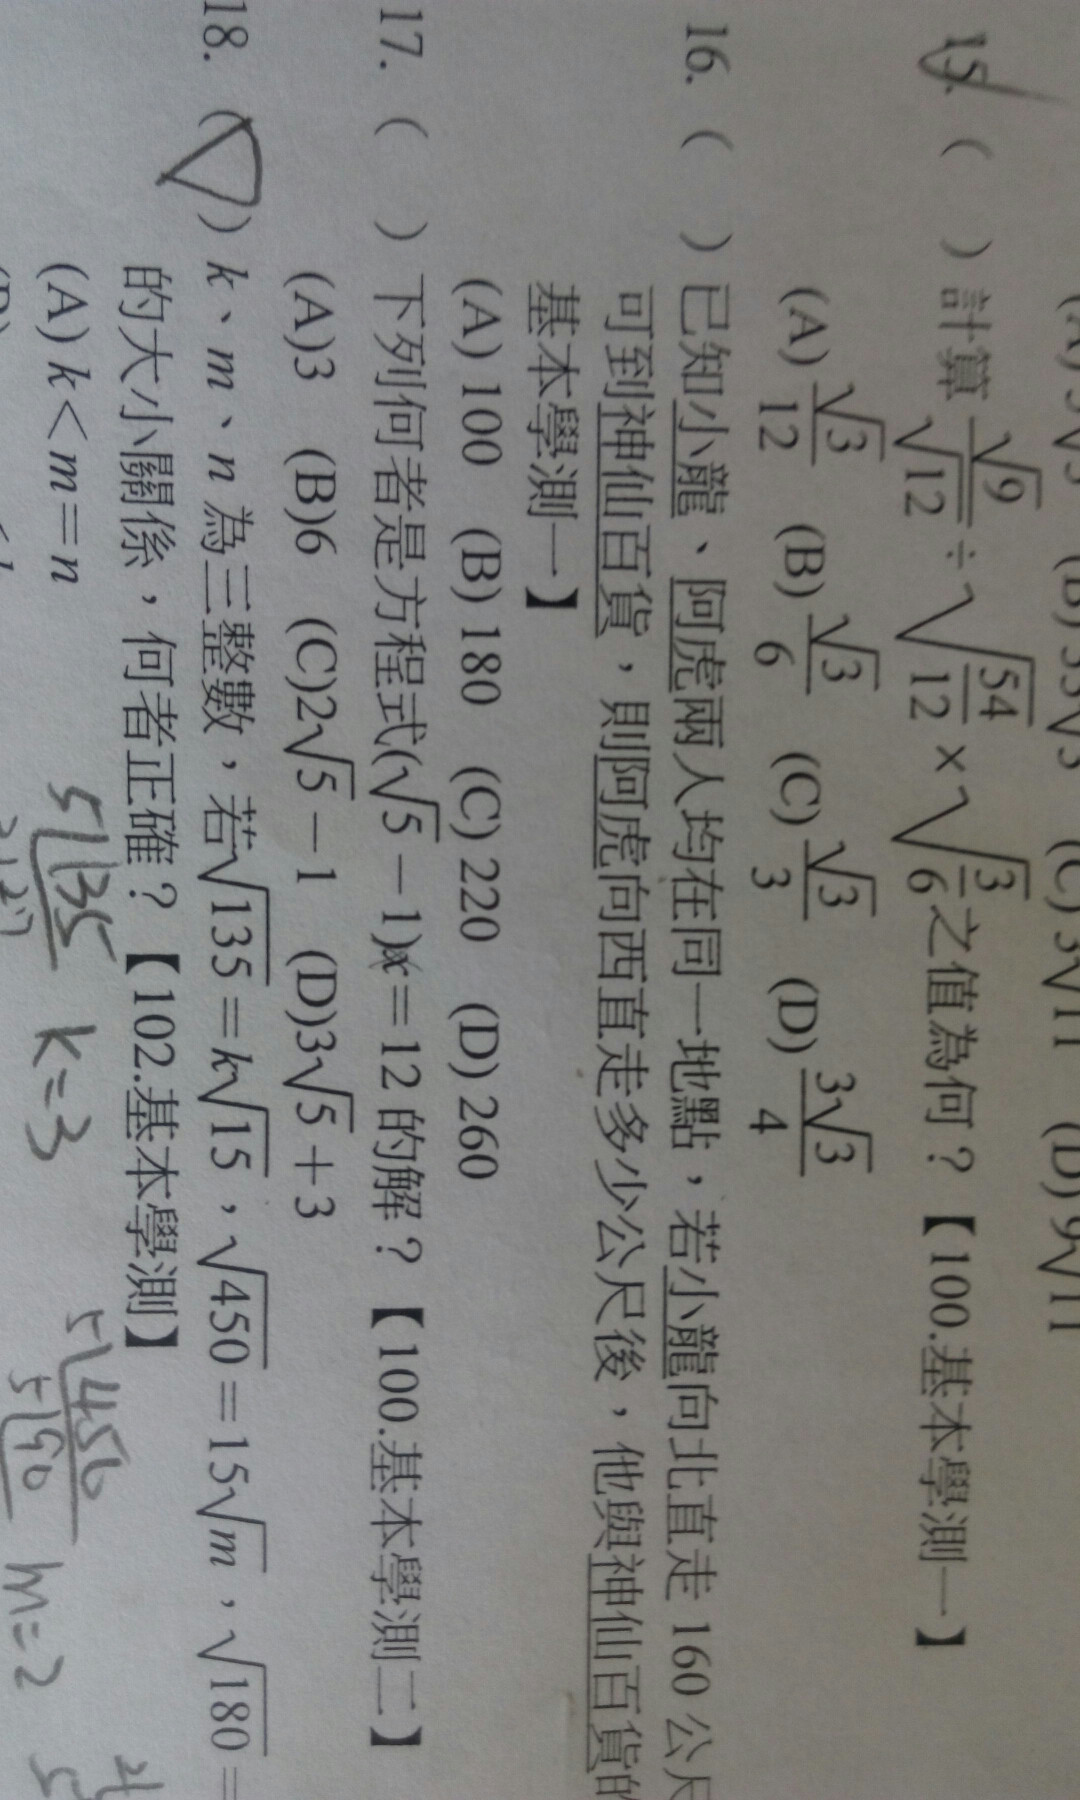 (A) 3√3 (B) 33√3 (C) 3√11 (D) 9√11
15. ( ) 計算 √9/√12 ÷ √(54/12) × √3/√6 之值為何？【100.基本學測一】
(A) √3/12 (B) √3/6 (C) √3/3 (D) 3√3/4
16. ( ) 已知小龍、阿虎兩人均在同一地點，若小龍向北直走 160 公尺
可到神仙百貨，則阿虎向西直走多少公尺後，他與神仙百貨的
基本學測一】
(A) 100 (B) 180 (C) 220 (D) 260
17. ( ) 下列何者是方程式(√5－1)x＝12 的解？【100.基本學測二】
(A)3 (B)6 (C)2√5－1 (D)3√5＋3
18. ( ) k、m、n 為三整數，若√135＝k√15，√450＝15√m，√180＝
的大小關係，何者正確？【102.基本學測】
(A) k＜m＝n
5 135 k=3
5 450 m=2
5 90